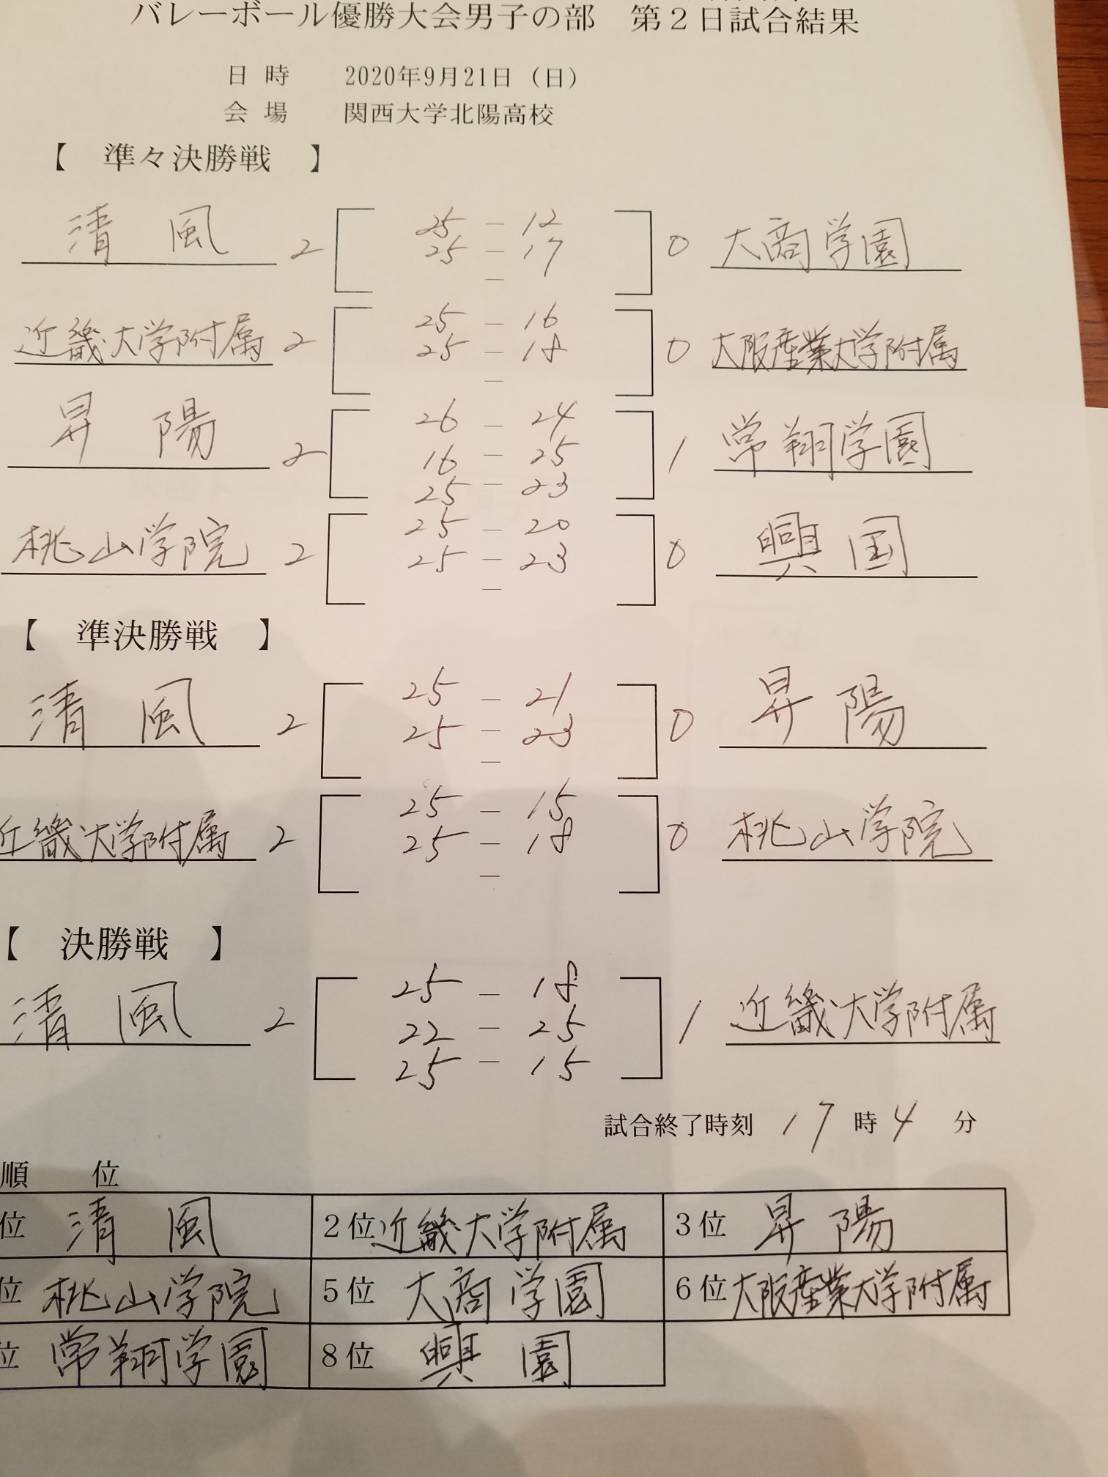 バレーボール優勝大会男子の部　第２日試合結果
日 時　2020年9月21日（日）
会 場　関西大学北陽高校
【　準々決勝戦　】
清風 2 [ 25 - 12 ] 0 大商学園
25 - 17
-
近畿大学附属 2 [ 25 - 16 ] 0 大阪産業大学附属
25 - 18
-
昇陽 2 [ 26 - 24 ] 1 常翔学園
16 - 25
25 - 23
桃山学院 2 [ 25 - 20 ] 0 興国
25 - 23
-
【　準決勝戦　】
清風 2 [ 25 - 21 ] 0 昇陽
25 - 23
-
近畿大学附属 2 [ 25 - 15 ] 0 桃山学院
25 - 18
-
【　決勝戦　】
清風 2 [ 25 - 18 ] 1 近畿大学附属
22 - 25
25 - 15
試合終了時刻 17 時 4 分
順　位
位 清風 2位 近畿大学附属 3位 昇陽
位 桃山学院 5位 大商学園 6位 大阪産業大学附属
位 常翔学園 8位 興園